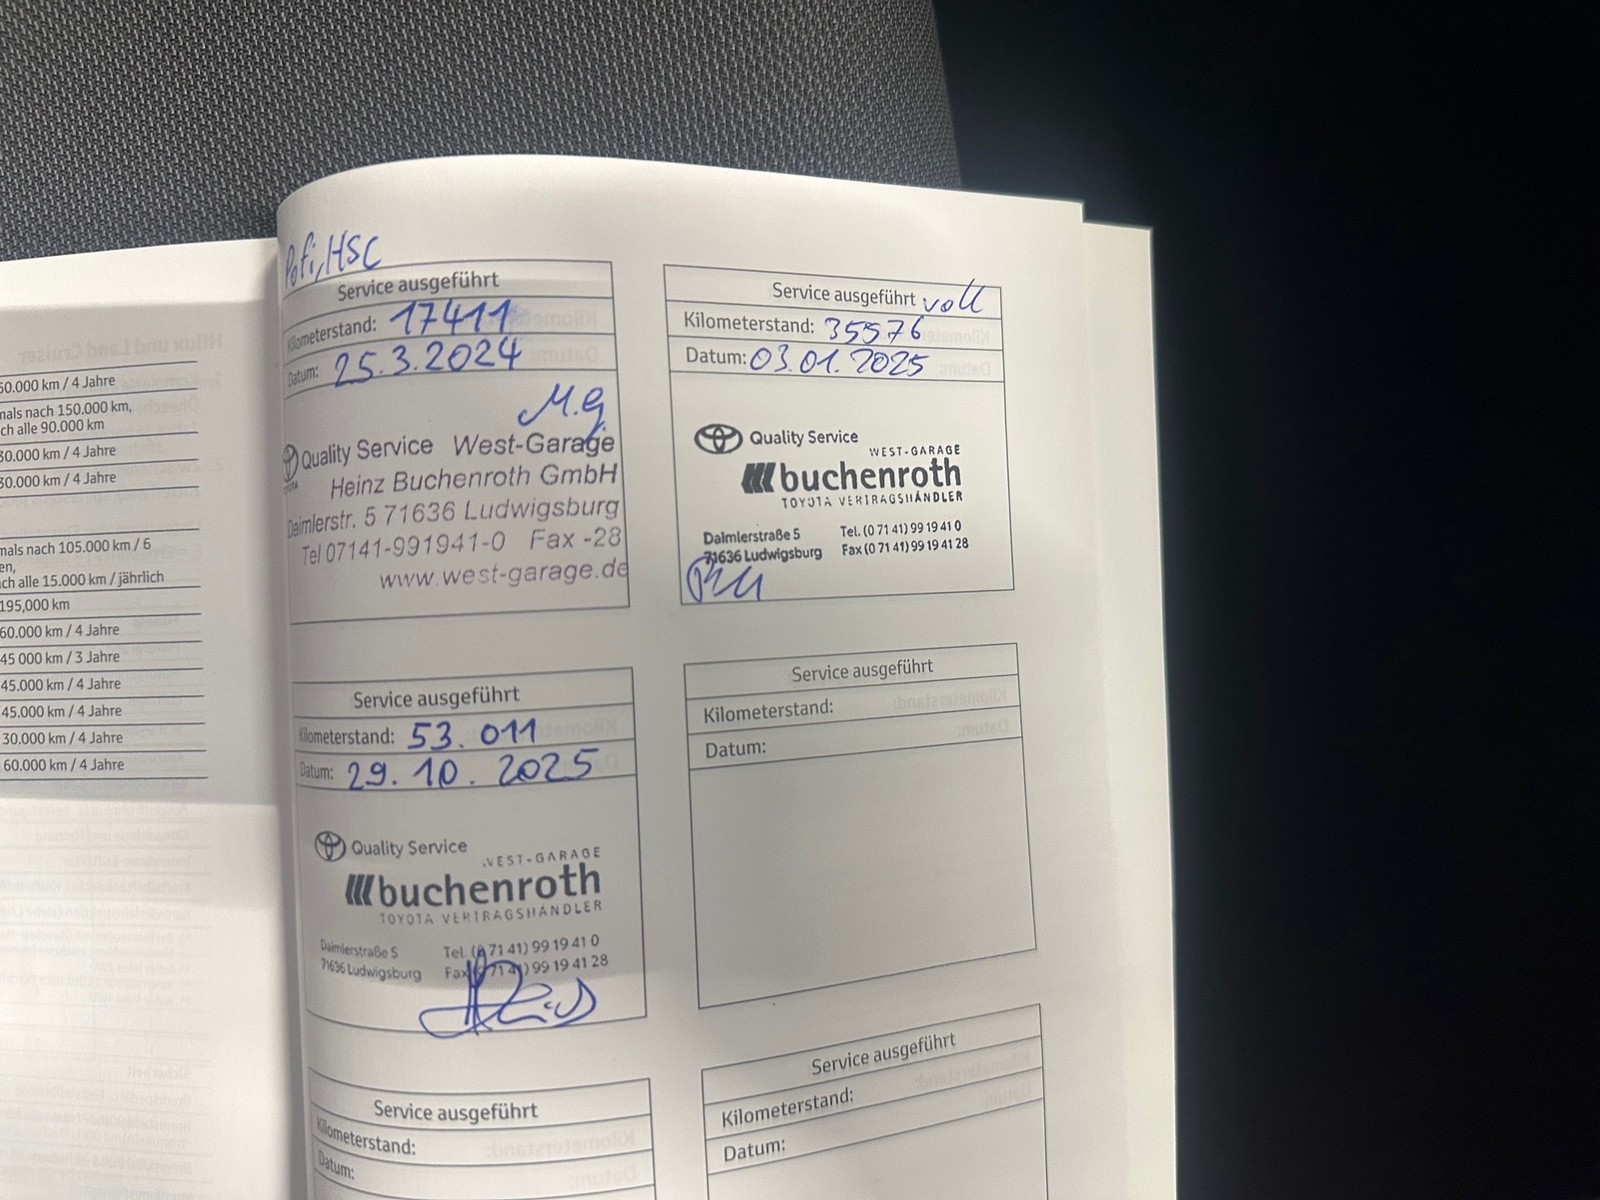 60.000 km / 4 Jahre
mals nach 150.000 km,
ch alle 90.000 km
30.000 km / 4 Jahre
30.000 km / 4 Jahre
mals nach 105.000 km / 6
en,
ch alle 15.000 km / jährlich
195,000 km
60.000 km / 4 Jahre
45 000 km / 3 Jahre
45.000 km / 4 Jahre
45.000 km / 4 Jahre
30.000 km / 4 Jahre
60.000 km / 4 Jahre
Pofi, HSC
Service ausgeführt
Kilometerstand: 17411
Datum: 25.3.2024
M.G.
Quality Service West-Garage
Heinz Buchenroth GmbH
Daimlerstr. 5 71636 Ludwigsburg
Tel 07141-991941-0 Fax -28
www.west-garage.de
TOYOTA
Service ausgeführt voll
Kilometerstand: 35576
Datum: 03.01.2025
Quality Service
WEST-GARAGE
buchenroth
TOYOTA VERTRAGSHÄNDLER
Daimlerstraße 5 Tel. (0 71 41) 99 19 41 0
71636 Ludwigsburg Fax (0 71 41) 99 19 41 28
Service ausgeführt
Kilometerstand: 53.011
Datum: 29.10.2025
Quality Service
WEST-GARAGE
buchenroth
TOYOTA VERTRAGSHÄNDLER
Daimlerstraße 5 Tel. (0 71 41) 99 19 41 0
71636 Ludwigsburg Fax (0 71 41) 99 19 41 28
Service ausgeführt
Kilometerstand:
Datum:
Service ausgeführt
Kilometerstand:
Datum:
Service ausgeführt
Kilometerstand:
Datum: